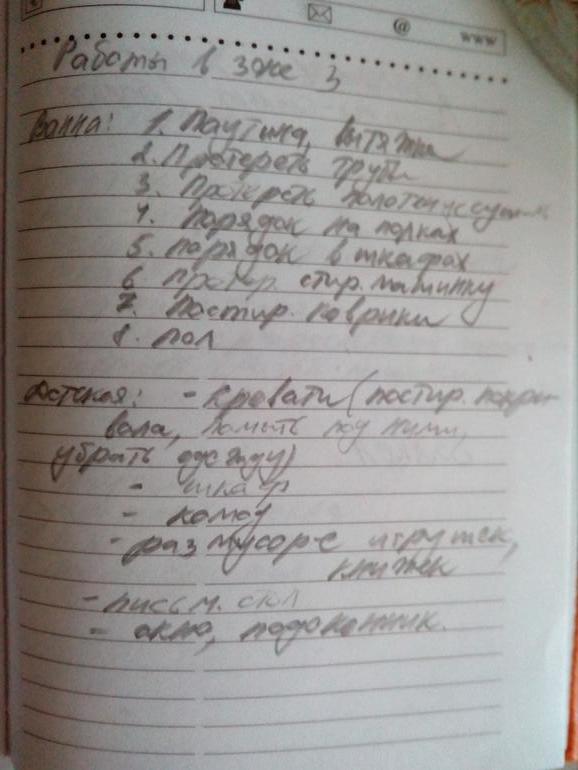 @ www
Работы в зоне 3
Ванна: 1. Паутина, вытяжка
2. Протереть трубы
3. Протереть полотенцесушит.
4. Порядок на полках
5. Порядок в шкафах
6 Протер. стир. машинку
7. Постир. коврики
8. Пол
Детская: - кровати (постир. покры-
вала, помыть под ними,
убрать одежду)
- шкаф
- комод
- размусор-е игрушек,
книжек
- письм. стол
- окно, подоконник.